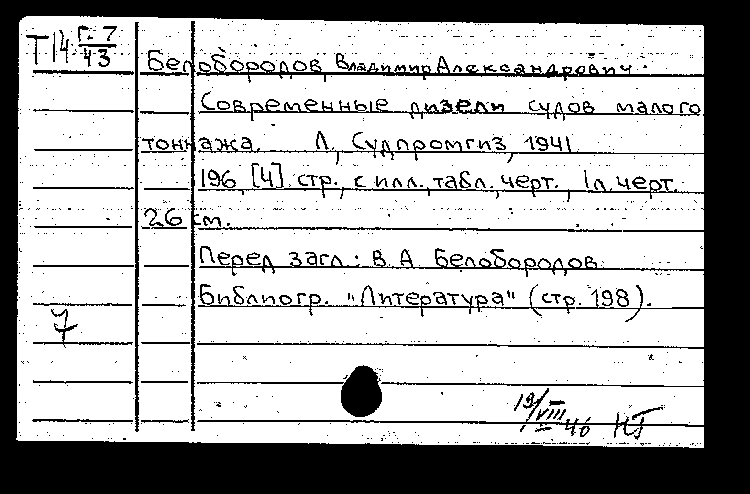 Т14 Г-7/43
Белобородов, Владимир Александрович.
Современные дизели судов малого
тоннажа. Л, Судпромгиз, 1941
196, [4] стр., с илл., табл., черт., 1 л. черт.
26 см.
Перед загл.: В. А. Белобородов
Библиогр. "Литература" (стр. 198).
7
19/VIII 46